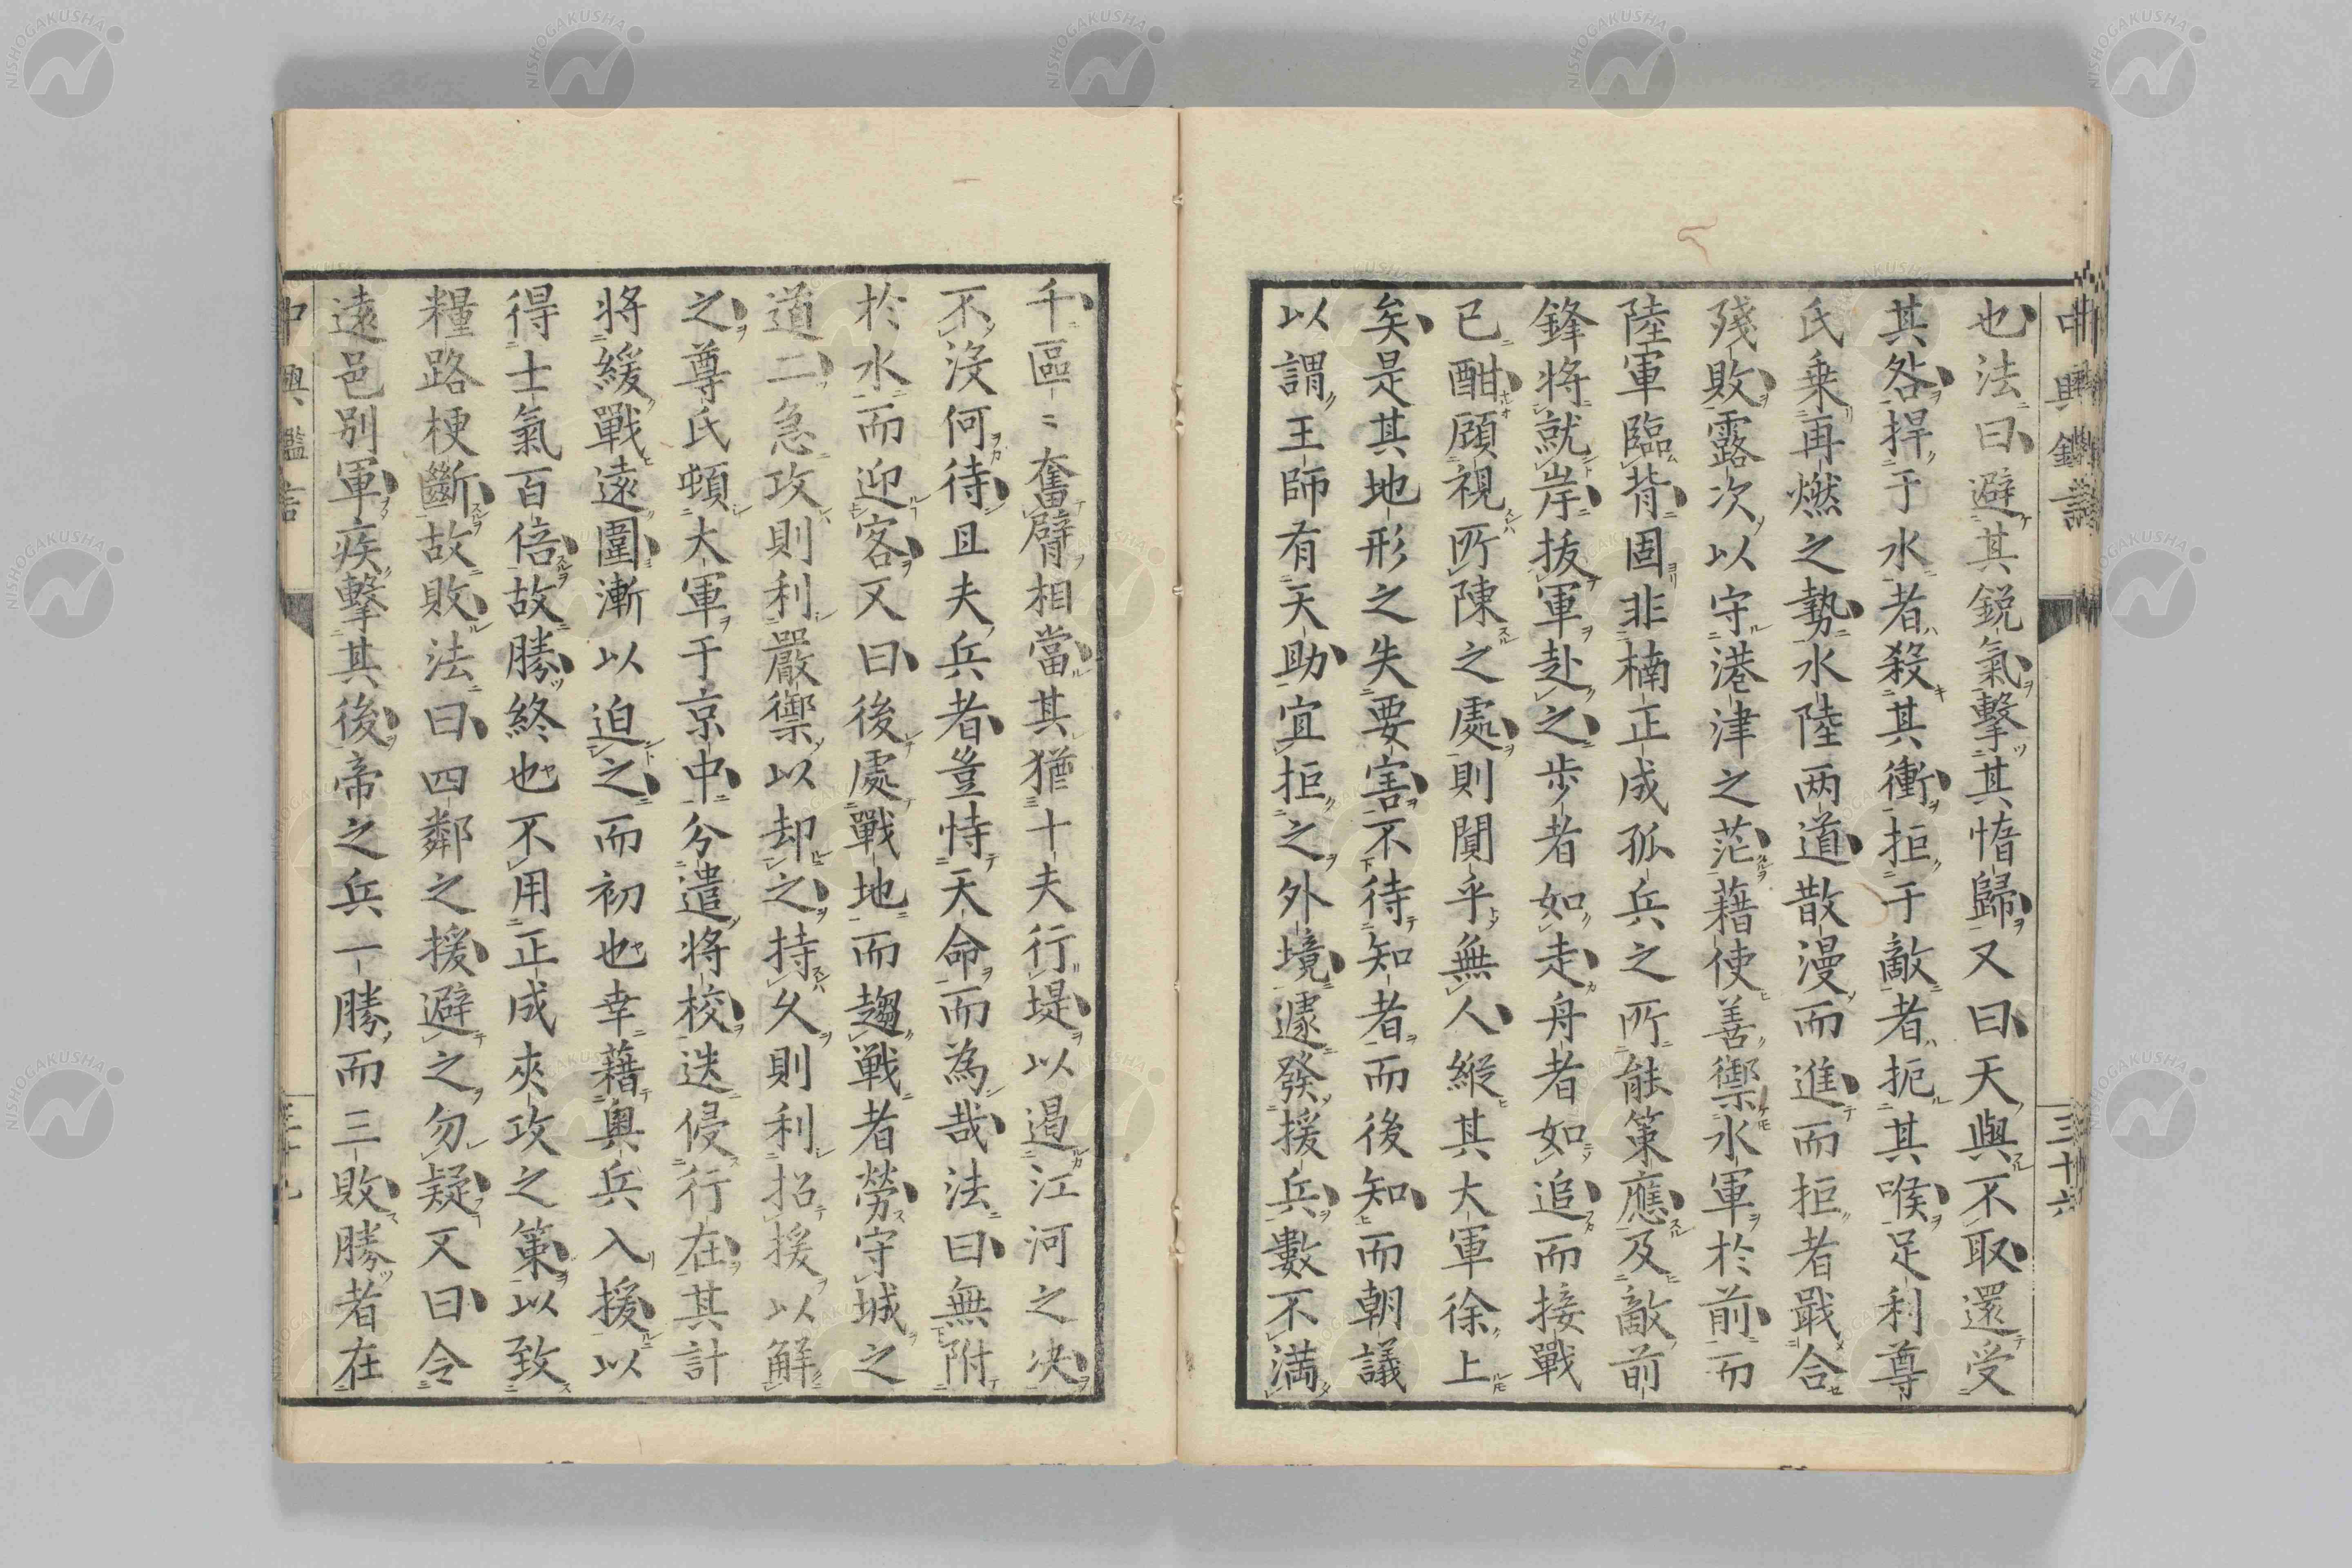 也法曰避其鋭氣擊其惰歸又曰天與不取還受
其咎捍于水者殺其衝拒于敵者扼其喉足利尊
氏乗再燃之勢水陸两道散漫而進而拒者戢合
殘敗露次以守港津之茫藉使善禦水軍於前而
陸軍臨背固非楠正成孤兵之所能策應及敵前
鋒将就岸拔軍赴之步者如走舟者如追而接戰
已酣顧視所陳之處則闃乎無人縱其大軍徐上
矣是其地形之失要害不待知者而後知而朝議
以謂王師有天助宜拒之外境遽發援兵數不満
中興鑑言
三十六
千區〻奮臂相當其猶十夫行堤以遏江河之决
不没何待且夫兵者豈恃天命而為哉法曰無附
於水而迎客又曰後處戰地而趨戦者勞守城之
道二急攻則利嚴禦以却之持久則利招援以解
之尊氏頓大軍于京中分遣将校迭侵行在其計
将緩戰遠圍漸以迫之而初也幸藉奥兵入援以
得士氣百倍故勝終也不用正成夾攻之策以致
糧路梗斷故敗法曰四鄰之援避之勿疑又曰令
遠邑别軍疾擊其後帝之兵一勝而三敗勝者在
中興鑑言